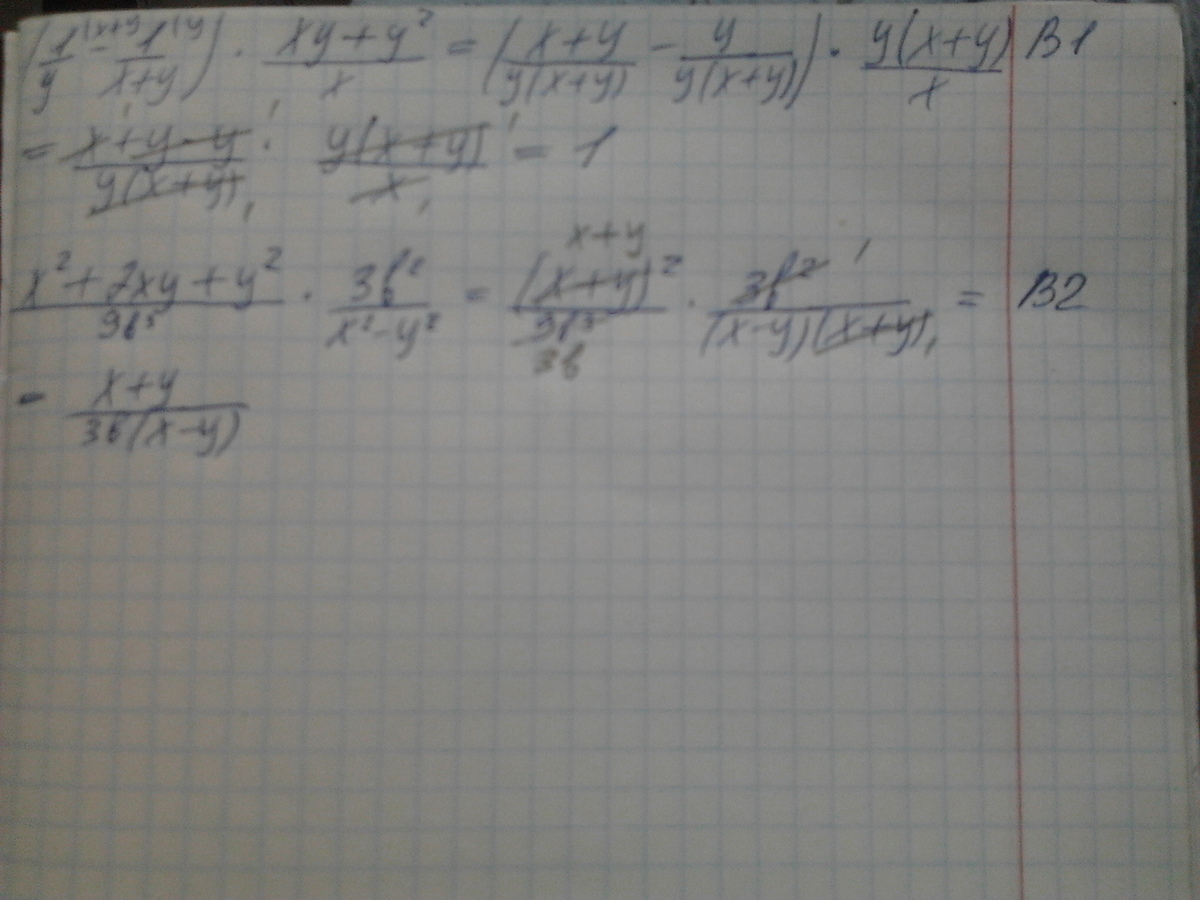 (1/y - 1/(x+y)) · (xy+y²)/x = ((x+y)/(y(x+y)) - y/(y(x+y))) · y(x+y)/x B1
= (x+y-y)/(y(x+y)) · y(x+y)/x = 1
(x²+2xy+y²)/9в³ · 3в²/(x²-y²) = (x+y)²/9в³ · 3в²/((x-y)(x+y)) = B2
= (x+y)/(3в(x-y))